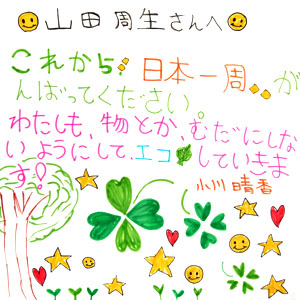 山田周生さんへ
これから、日本一周、、が
んばってください。
わたしも、物とか、むだにしな
いようにして、エコしていきま
す!
小川晴香